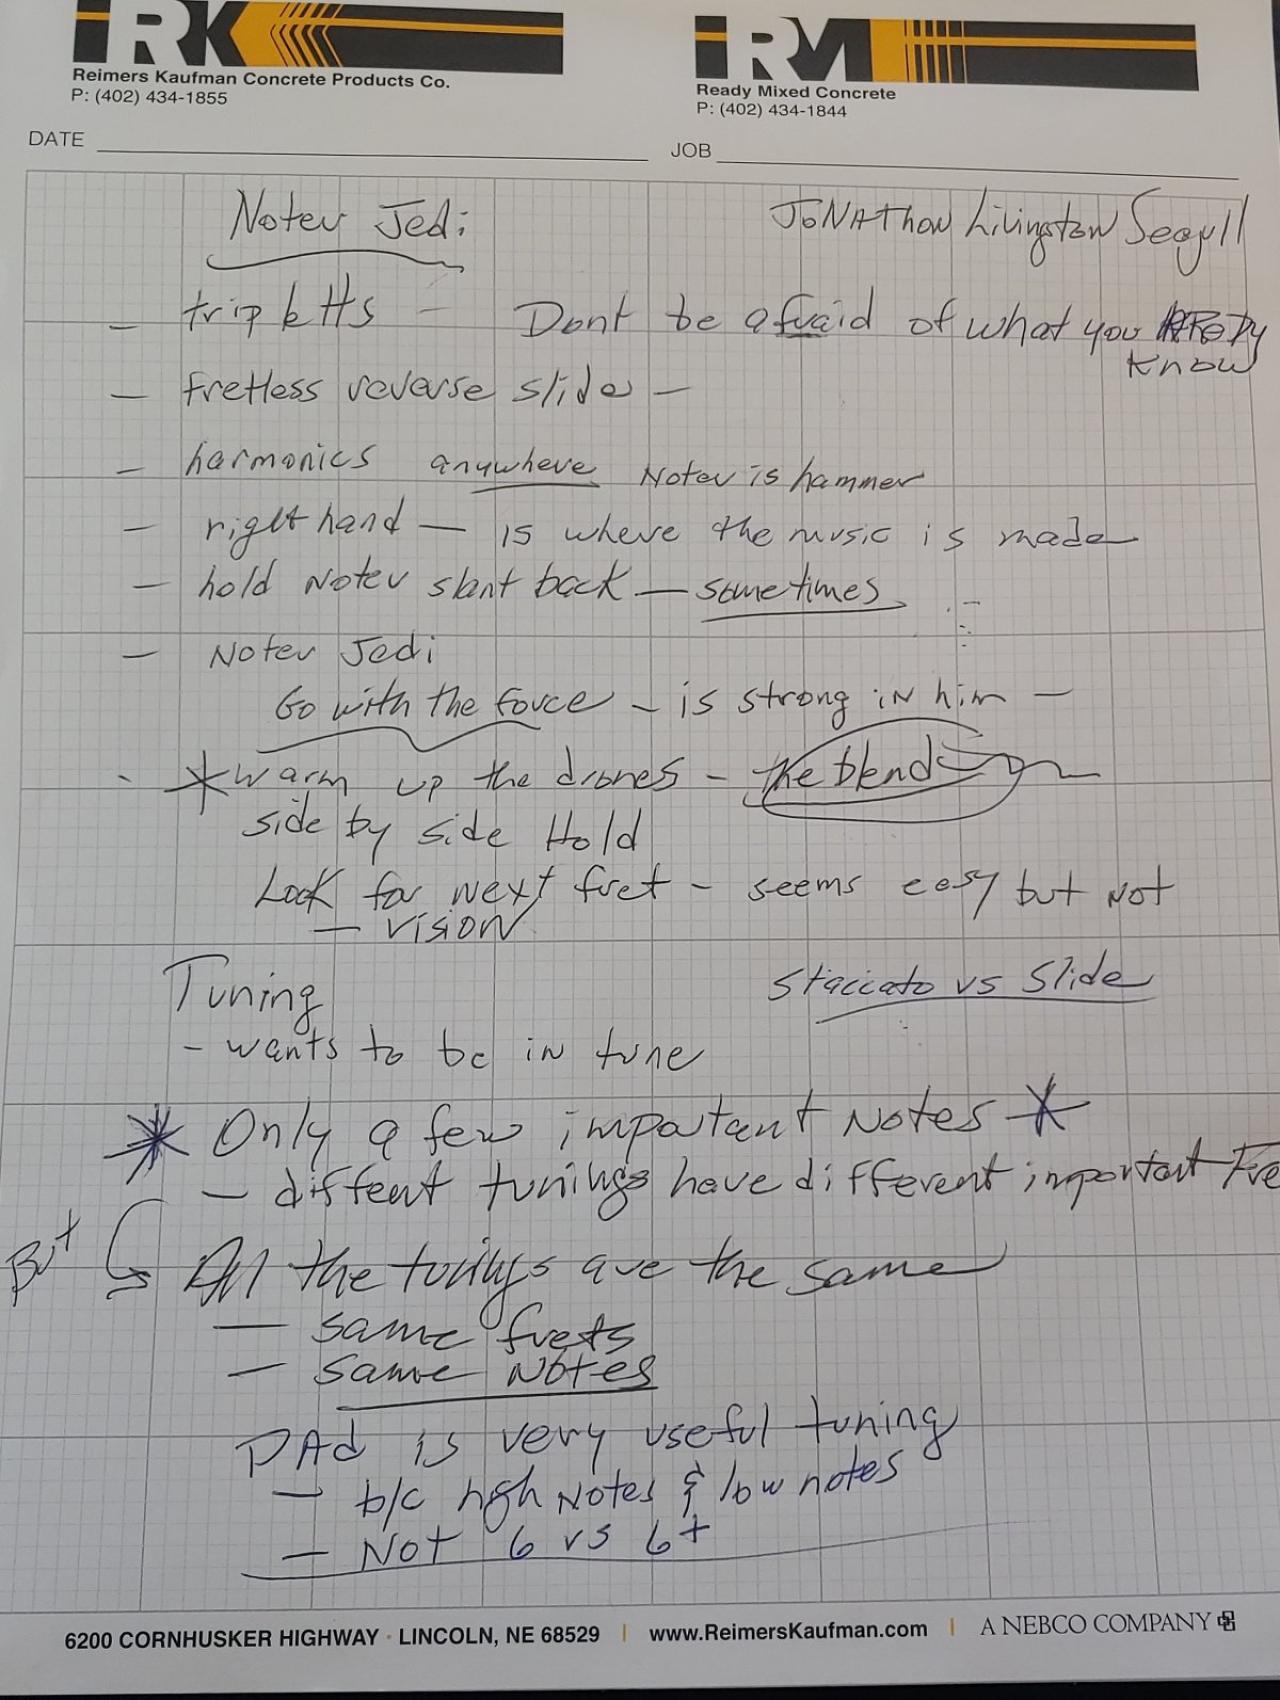 Reimers Kaufman Concrete Products Co.
P: (402) 434-1855
Ready Mixed Concrete
P: (402) 434-1844
DATE
JOB
Noter Jedi
JONAthon Livingston Seagull
- trip letts - Dont be afraid of what you AlReDy
know
- fretless reverse slide -
- harmonics anywhere Noter is hammer
- right hand - is where the music is made
- hold Noter slant back - sometimes
- Noter Jedi
Go with the force - is strong in him -
* warm up the drones - the blend
side by side Hold
Look for next fret - seems easy but not
- vision
Tuning
Staccato vs Slide
- wants to be in tune
* Only a few important Notes *
- diffent tunings have different important Fre
But
All the tunings are the same
- same frets
- same Notes
DAd is very useful tuning
- b/c high Notes & low notes
- Not 6 vs 6+
6200 CORNHUSKER HIGHWAY · LINCOLN, NE 68529 | www.ReimersKaufman.com | A NEBCO COMPANY